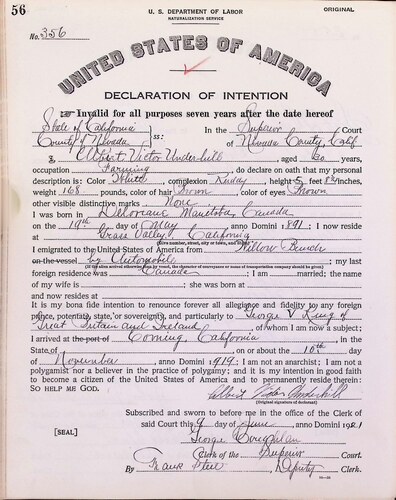 56
U. S. DEPARTMENT OF LABOR
NATURALIZATION SERVICE
ORIGINAL
No. 356
UNITED STATES OF AMERICA
DECLARATION OF INTENTION
Invalid for all purposes seven years after the date hereof
State of California
County of Nevada ss:
In the Superior Court
of Nevada County, Calif.
I, Albert Victor Underhill, aged 30 years,
occupation Farming, do declare on oath that my personal
description is: Color White, complexion Ruddy, height 5 feet 8 inches,
weight 168 pounds, color of hair Brown, color of eyes Brown
other visible distinctive marks None
I was born in Deloraine Manitoba, Canada
on the 19th day of May, anno Domini 1891; I now reside
at Grass Valley, California
(Give number, street, city or town, and State.)
I emigrated to the United States of America from Willow Bunch
on the vessel by Automobile; my last
(If the alien arrived otherwise than by vessel, the character of conveyance or name of transportation company should be given.)
foreign residence was Canada; I am married; the name
of my wife is; she was born at
and now resides at
It is my bona fide intention to renounce forever all allegiance and fidelity to any foreign
prince, potentate, state, or sovereignty, and particularly to George V King of
Great Britain and Ireland, of whom I am now a subject;
I arrived at the port of Corning, California, in the
State of on or about the 10th day
of November, anno Domini 1919; I am not an anarchist; I am not a
polygamist nor a believer in the practice of polygamy; and it is my intention in good faith
to become a citizen of the United States of America and to permanently reside therein:
SO HELP ME GOD.
Albert Victor Underhill
(Original signature of declarant.)
Subscribed and sworn to before me in the office of the Clerk of
said Court this 9 day of June, anno Domini 1921
[SEAL]
George Coughlan
Clerk of the Superior Court.
By Frank Steel, Deputy Clerk.